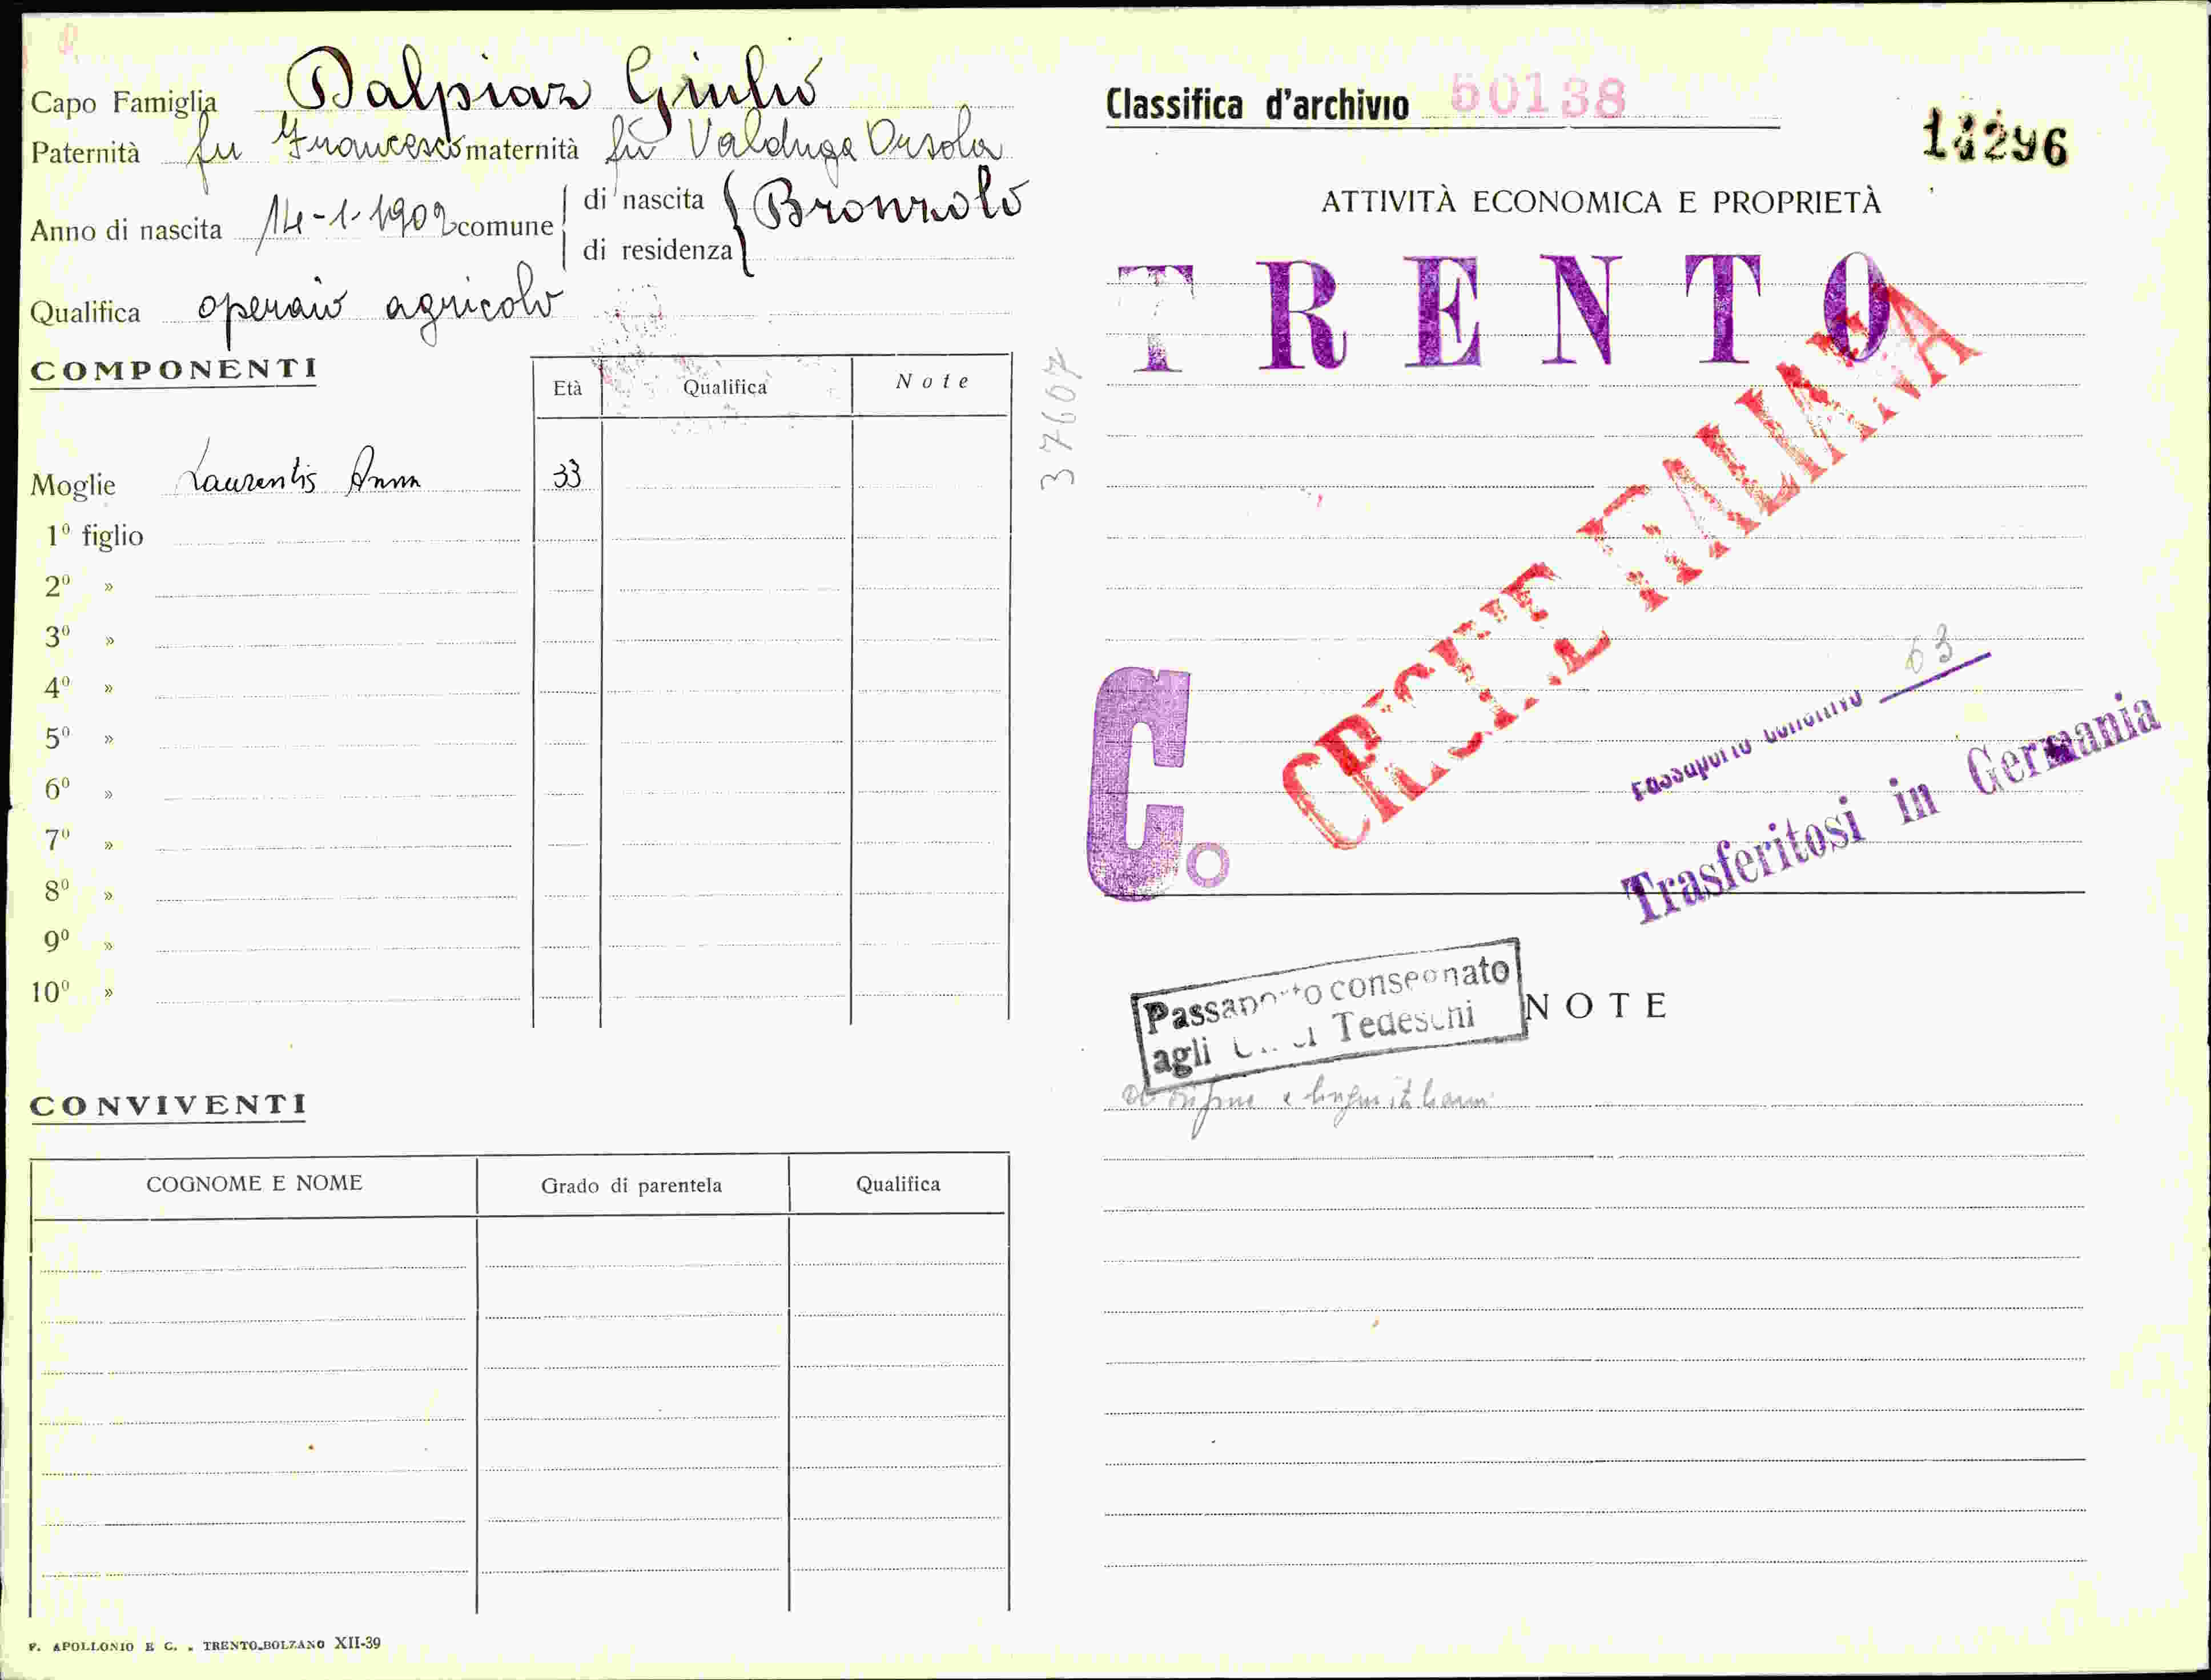 Capo Famiglia Dalpiaz Giulio
Paternità fu Francesco maternità fu Valduga Orsola
Anno di nascita 14-1-1902 comune di nascita Bronzolo
di residenza
Qualifica operaio agricolo
COMPONENTI
Età Qualifica Note
Moglie Laurentis Anna 33
1º figlio
2º »
3º »
4º »
5º »
6º »
7º »
8º »
9º »
10º »
CONVIVENTI
COGNOME E NOME Grado di parentela Qualifica
F. APOLLONIO E C. - TRENTO-BOLZANO XII-39
37607
Classifica d'archivio 50138
14296
ATTIVITÀ ECONOMICA E PROPRIETÀ
TRENTO
ORIGINE ITALIANA
C.
Passaporto collettivo 63
Trasferitosi in Germania
Passaporto consegnato
agli Uffici Tedeschi
NOTE
Di origine e lingua italiana